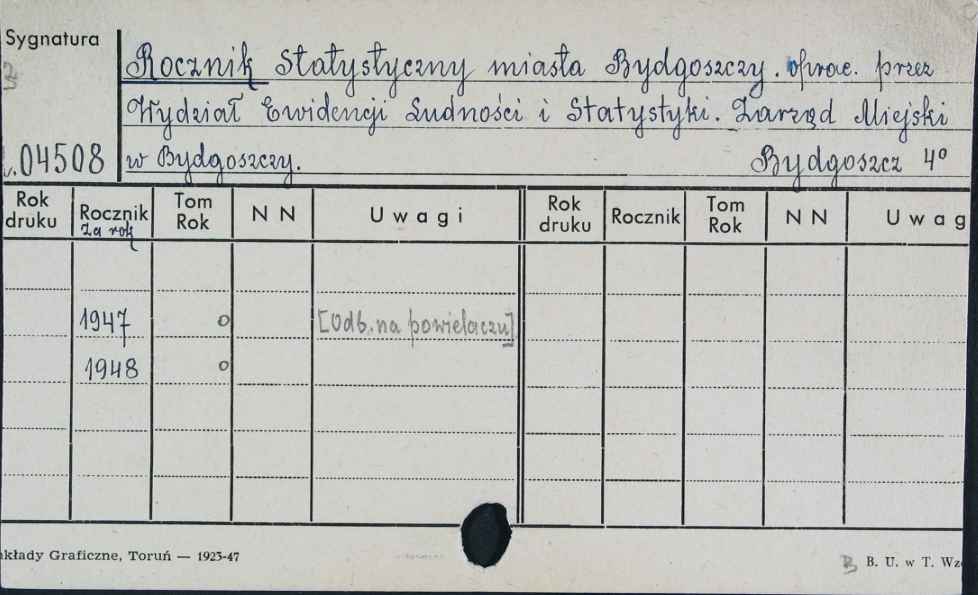 Sygnatura
Rocznik Statystyczny miasta Bydgoszczy. oprac. przez
Wydział Ewidencji Ludności i Statystyki. Zarząd Miejski
04508 w Bydgoszczy. Bydgoszcz 4°
Rok druku Rocznik Za rok Tom Rok N N Uwagi Rok druku Rocznik Tom Rok N N Uwag
1947 o [Odb. na powielaczu]
1948 o
kłady Graficzne, Toruń — 1923-47 B B. U. w T. Wz